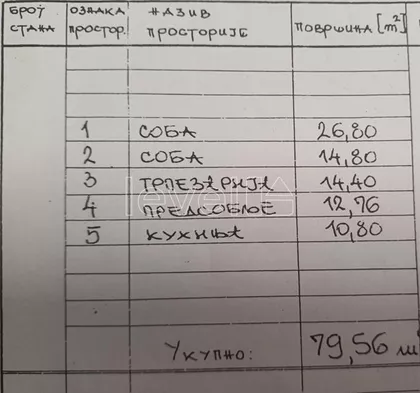 БРОЈ СТАНА ОЗНАКА ПРОСТОР. НАЗИВ ПРОСТОРИЈЕ ПОВРШИНА [m²]
1 СОБА 26,80
2 СОБА 14,80
3 ТРПЕЗАРИЈА 14,40
4 ПРЕДСОБЉЕ 12,76
5 КУХИЊА 10,80
УКУПНО: 79,56 m